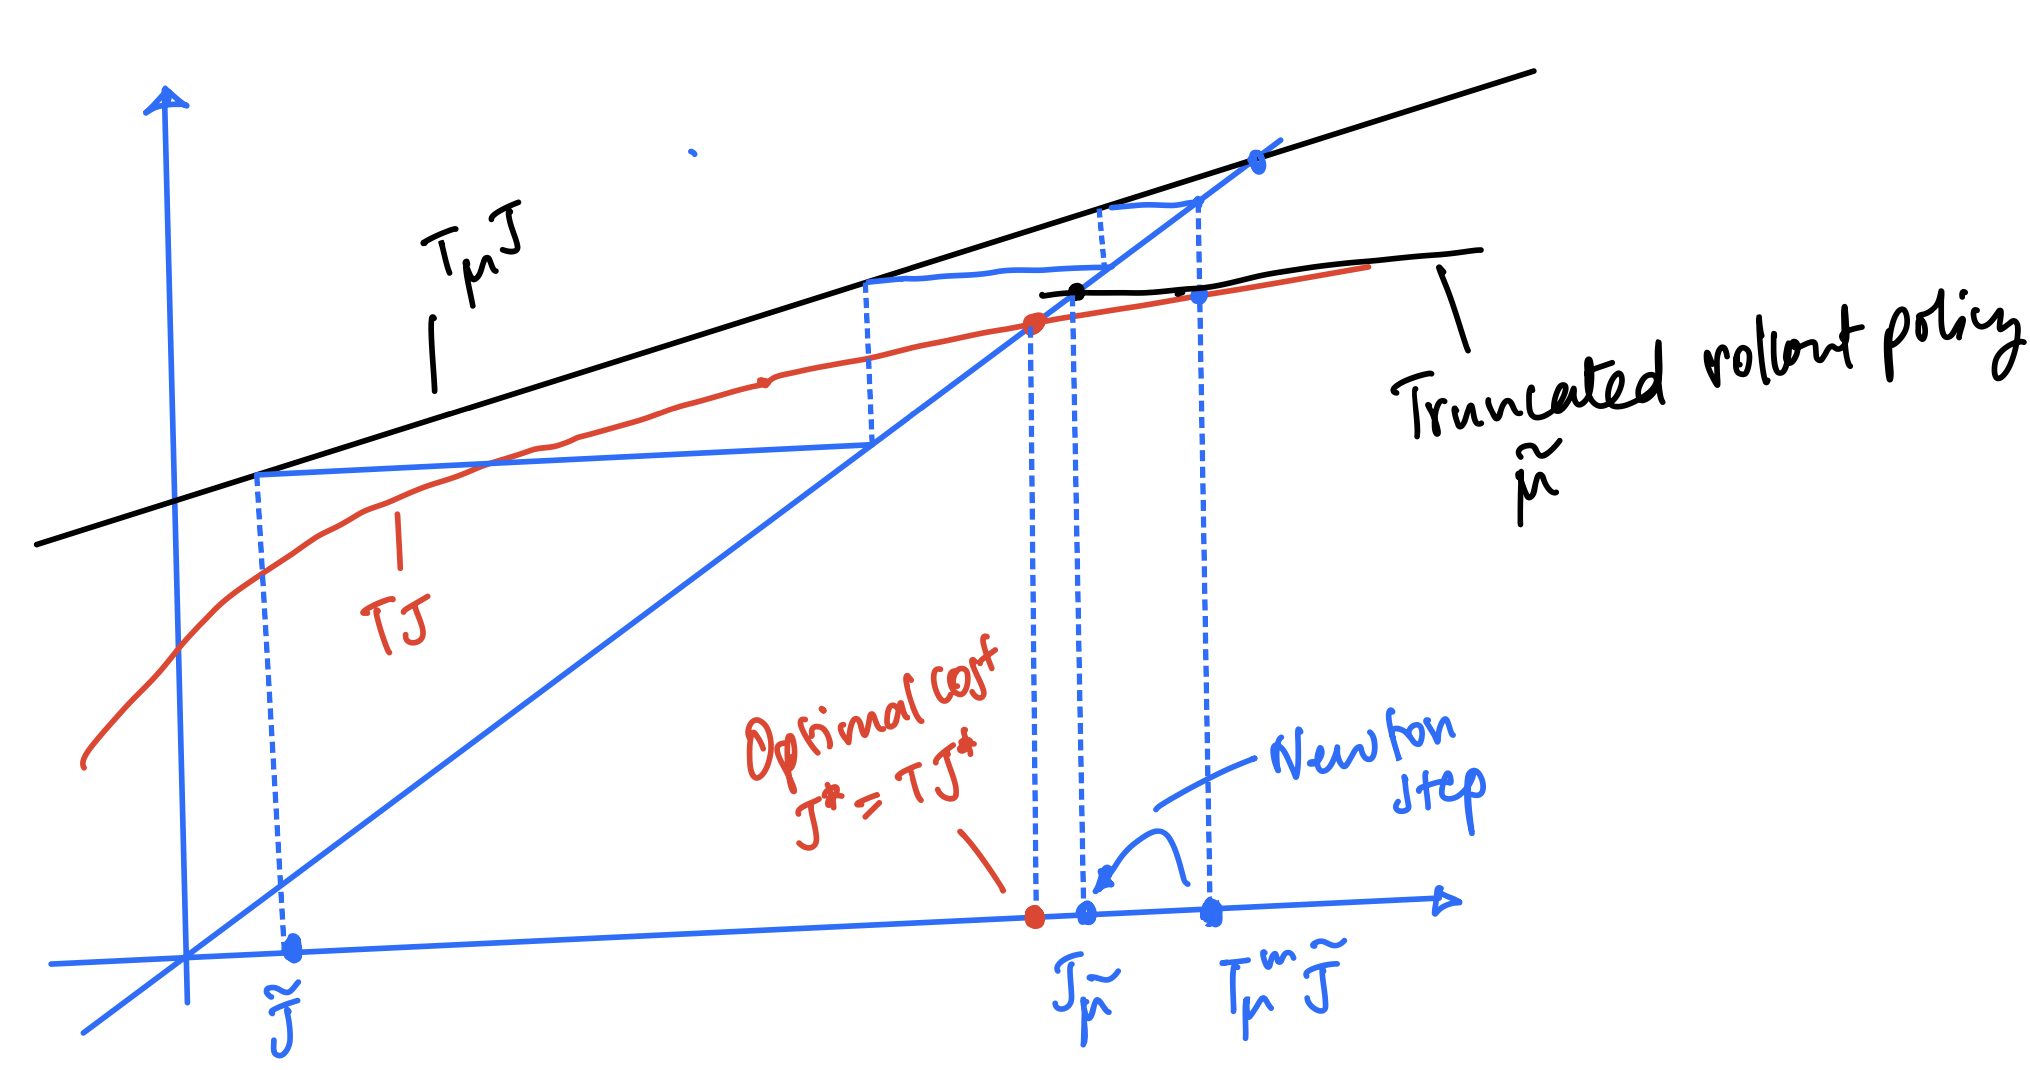 TμJ
Truncated rollout policy
μ̃
TJ
Optimal cost
J* = TJ*
Newton
step
J̃
J_μ̃
T_μ^m J̃